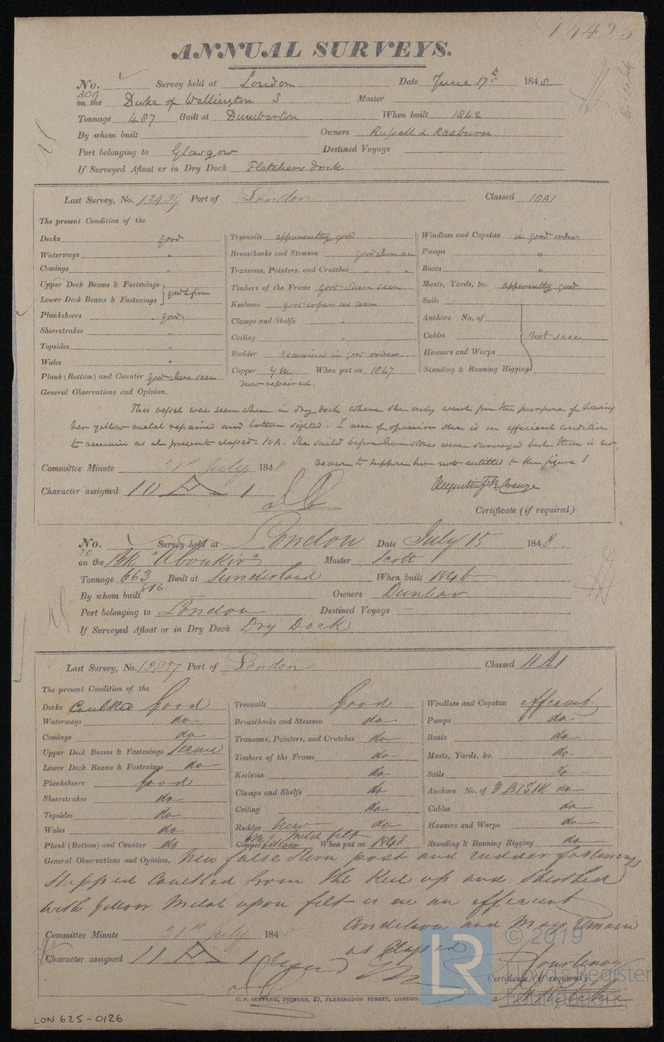 ANNUAL SURVEYS.
No. Survey held at London Date June 17th 1848
on the Duke of Wellington S Master
Tonnage 487 Built at Dumbarton When built 1842
By whom built Owners
Port belonging to Glasgow Destined Voyage
If Surveyed Afloat or in Dry Dock Fletchers Dock
Last Survey, No. Port of London Classed 10A1
The present Condition of the
Decks good
Waterways "
Comings "
Upper Deck Beams & Fastenings
Lower Deck Beams & Fastenings } good & firm
Planksheers good
Sheerstrakes "
Topsides "
Wales "
Plank (Bottom) and Counter good where seen
Treenails apparently good
Breasthooks and Stemson good where seen
Transoms, Pointers, and Crutches " "
Timbers of the Frame good where seen
Keelsons good as far as seen
Clamps and Shelfs "
Ceiling "
Rudder in good order
Copper Y.M. When put on 1847
now repaired.
Windlass and Capstan in good order
Pumps "
Boats "
Masts, Yards, &c. apparently good
Sails
Anchors No. of
Cables not seen
Hawsers and Warps
Standing & Running Rigging
General Observations and Opinion.
This vessel was seen when in dry dock where she only went for the purpose of having
her yellow metal repaired and bottom sighted. I am of opinion she is in efficient condition
to remain as at present classed 10A. She sailed before her stores were surveyed but there is no
reason to suppose her not entitled to the figure 1.
Committee Minute 21st July 1848
Character assigned 10 A 1
Certificate (if required)
No. Survey held at London Date July 15 1848.
on the Bk "Aboukir" Master Scott
Tonnage 663 Built at Sunderland When built 1846
816
By whom built Owners Dunbar
Port belonging to London Destined Voyage
If Surveyed Afloat or in Dry Dock Dry Dock
Last Survey, No. Port of London Classed 11 A1
The present Condition of the
Decks Caulked Good
Waterways do
Comings do
Upper Deck Beams & Fastenings Secure
Lower Deck Beams & Fastenings do
Planksheers good
Sheerstrakes do
Topsides do
Wales do
Plank (Bottom) and Counter do
Treenails Good
Breasthooks and Stemson do
Transoms, Pointers, and Crutches do
Timbers of the Frame do
Keelsons do
Clamps and Shelfs do
Ceiling do
Rudder New do
Copper When put on 1848
Windlass and Capstan efficient
Pumps do
Boats do
Masts, Yards, &c. do
Sails do
Anchors No. of 3 B 1 S 1 K do
Cables do
Hawsers and Warps do
Standing & Running Rigging do
General Observations and Opinion. New false Stern post and rudder fastenings
Stripped Caulked from the Keel up and Sheathed
with Yellow Metal upon felt is in an efficient
Condition and may remain
as Classed
Committee Minute 21st July 184
Character assigned 11 A 1
Certificate (if required)
C. F. SEYFANG, PRINTER, 57, FARRINGDON STREET, LONDON.
LON 625-0126
LR
© 2019
Lloyd's Register
Foundation